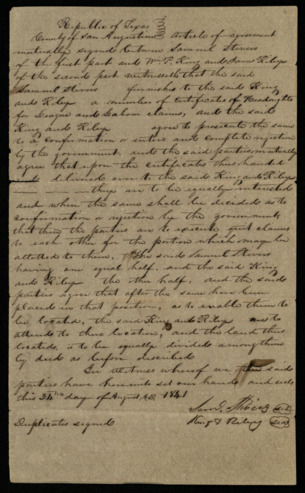 Republic of Texas
County of San Augustine article of agreement
mutually signed between Samuel Stivers
of the first part and Wm P. King and James Riley
of the second part witnesseth that the said
Samuel Stivers furnishes to the said King
and Riley a number of certificates of Headrights
for League and Labors claims, and the said
King and Riley agree to prosecute the same
to a confirmation or and complete rejection
by the government, and the said parties mutually
agree that upon the certificates thus handed
and delivered over to the said King and Riley
they are to be equally interested
and when the same shall be decided as to
confirmation or rejection by the government
that they the parties are to execute quit claims
to each other for the portion which may be
allotted to them, The said Samuel Stivers
having one equal half, and the said King
and Riley the other half, and the said
parties agree that after the same have been
placed in that position, as to enable them to
be located, the said King and Riley are to
attend to their location, and the lands thus
located, is to be equally divided among them
by deed as before described
In witness whereof we the said
parties have hereunto set our hands and seals
this 24th day of August AD. 1841
Saml. Stivers Seal
Duplicates signed King & Riley Seal